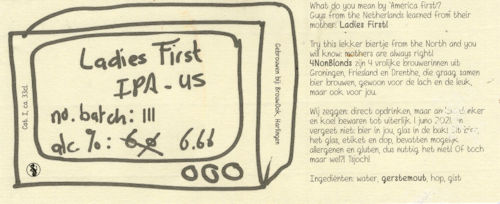 Cat. I, ca. 33cl.
Ladies First
IPA - US
no. batch: III
alc %: 6,0 6.66
Gebrouwen bij: BrouwDok, Harlingen
What do you mean by 'America first'?
Guys from the Netherlands learned from their
mother: Ladies First!
Try this lekker biertje from the North and you
will know: mothers are always right!
4NonBlonds zijn 4 vrolijke brouwerinnen uit
Groningen, Friesland en Drenthe, die graag samen
bier brouwen, gewoon voor de lach en de leuk,
maar ook voor jou.
Wij zeggen: direct opdrinken, maar donker
en koel bewaren tot uiterlijk 1 juni 2021 en
vergeet niet: bier in jou, glas in de bak! Dit bier,
het glas, etiket en dop, bevatten mogelijk
allergenen en gluten, dus nuttig het niet! Of toch
maar wel?! Tsjoch!
Ingrediënten: water, gerstemout, hop, gist